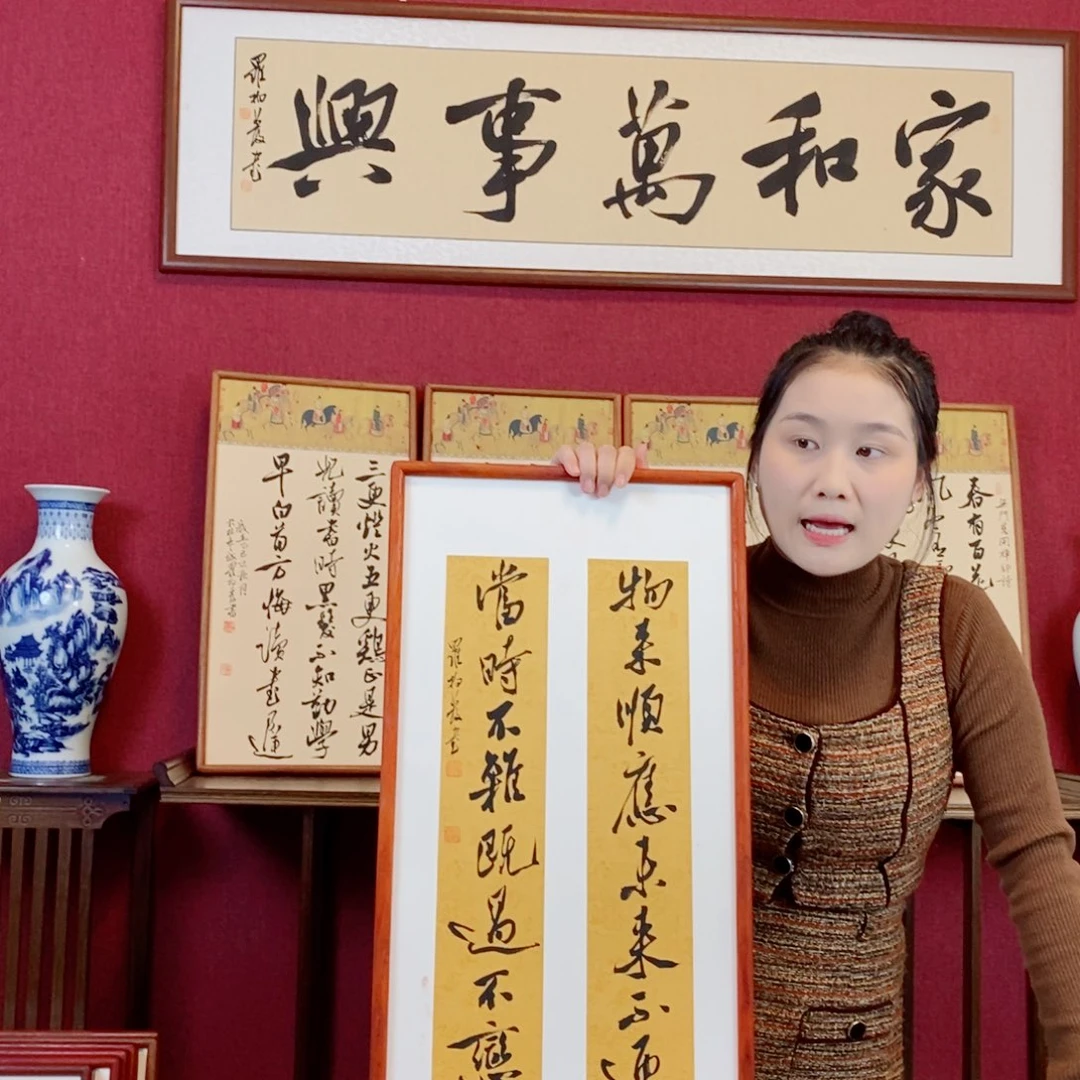 家和萬事興
三更燈火五更鷄正是男
児讀書時黑髮不知勤學
早白首方悔讀書遲
春有百花
物来順應未来不迎
當時不雜既過不戀